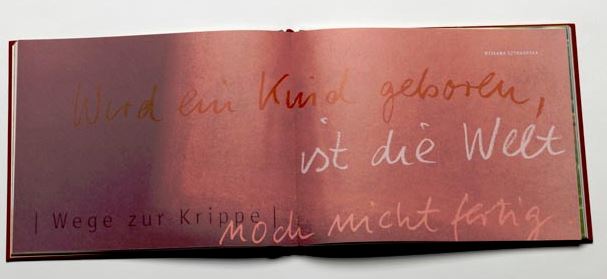 Wird ein Kind geboren,
ist die Welt
| Wege zur Krippe |
noch nicht fertig.